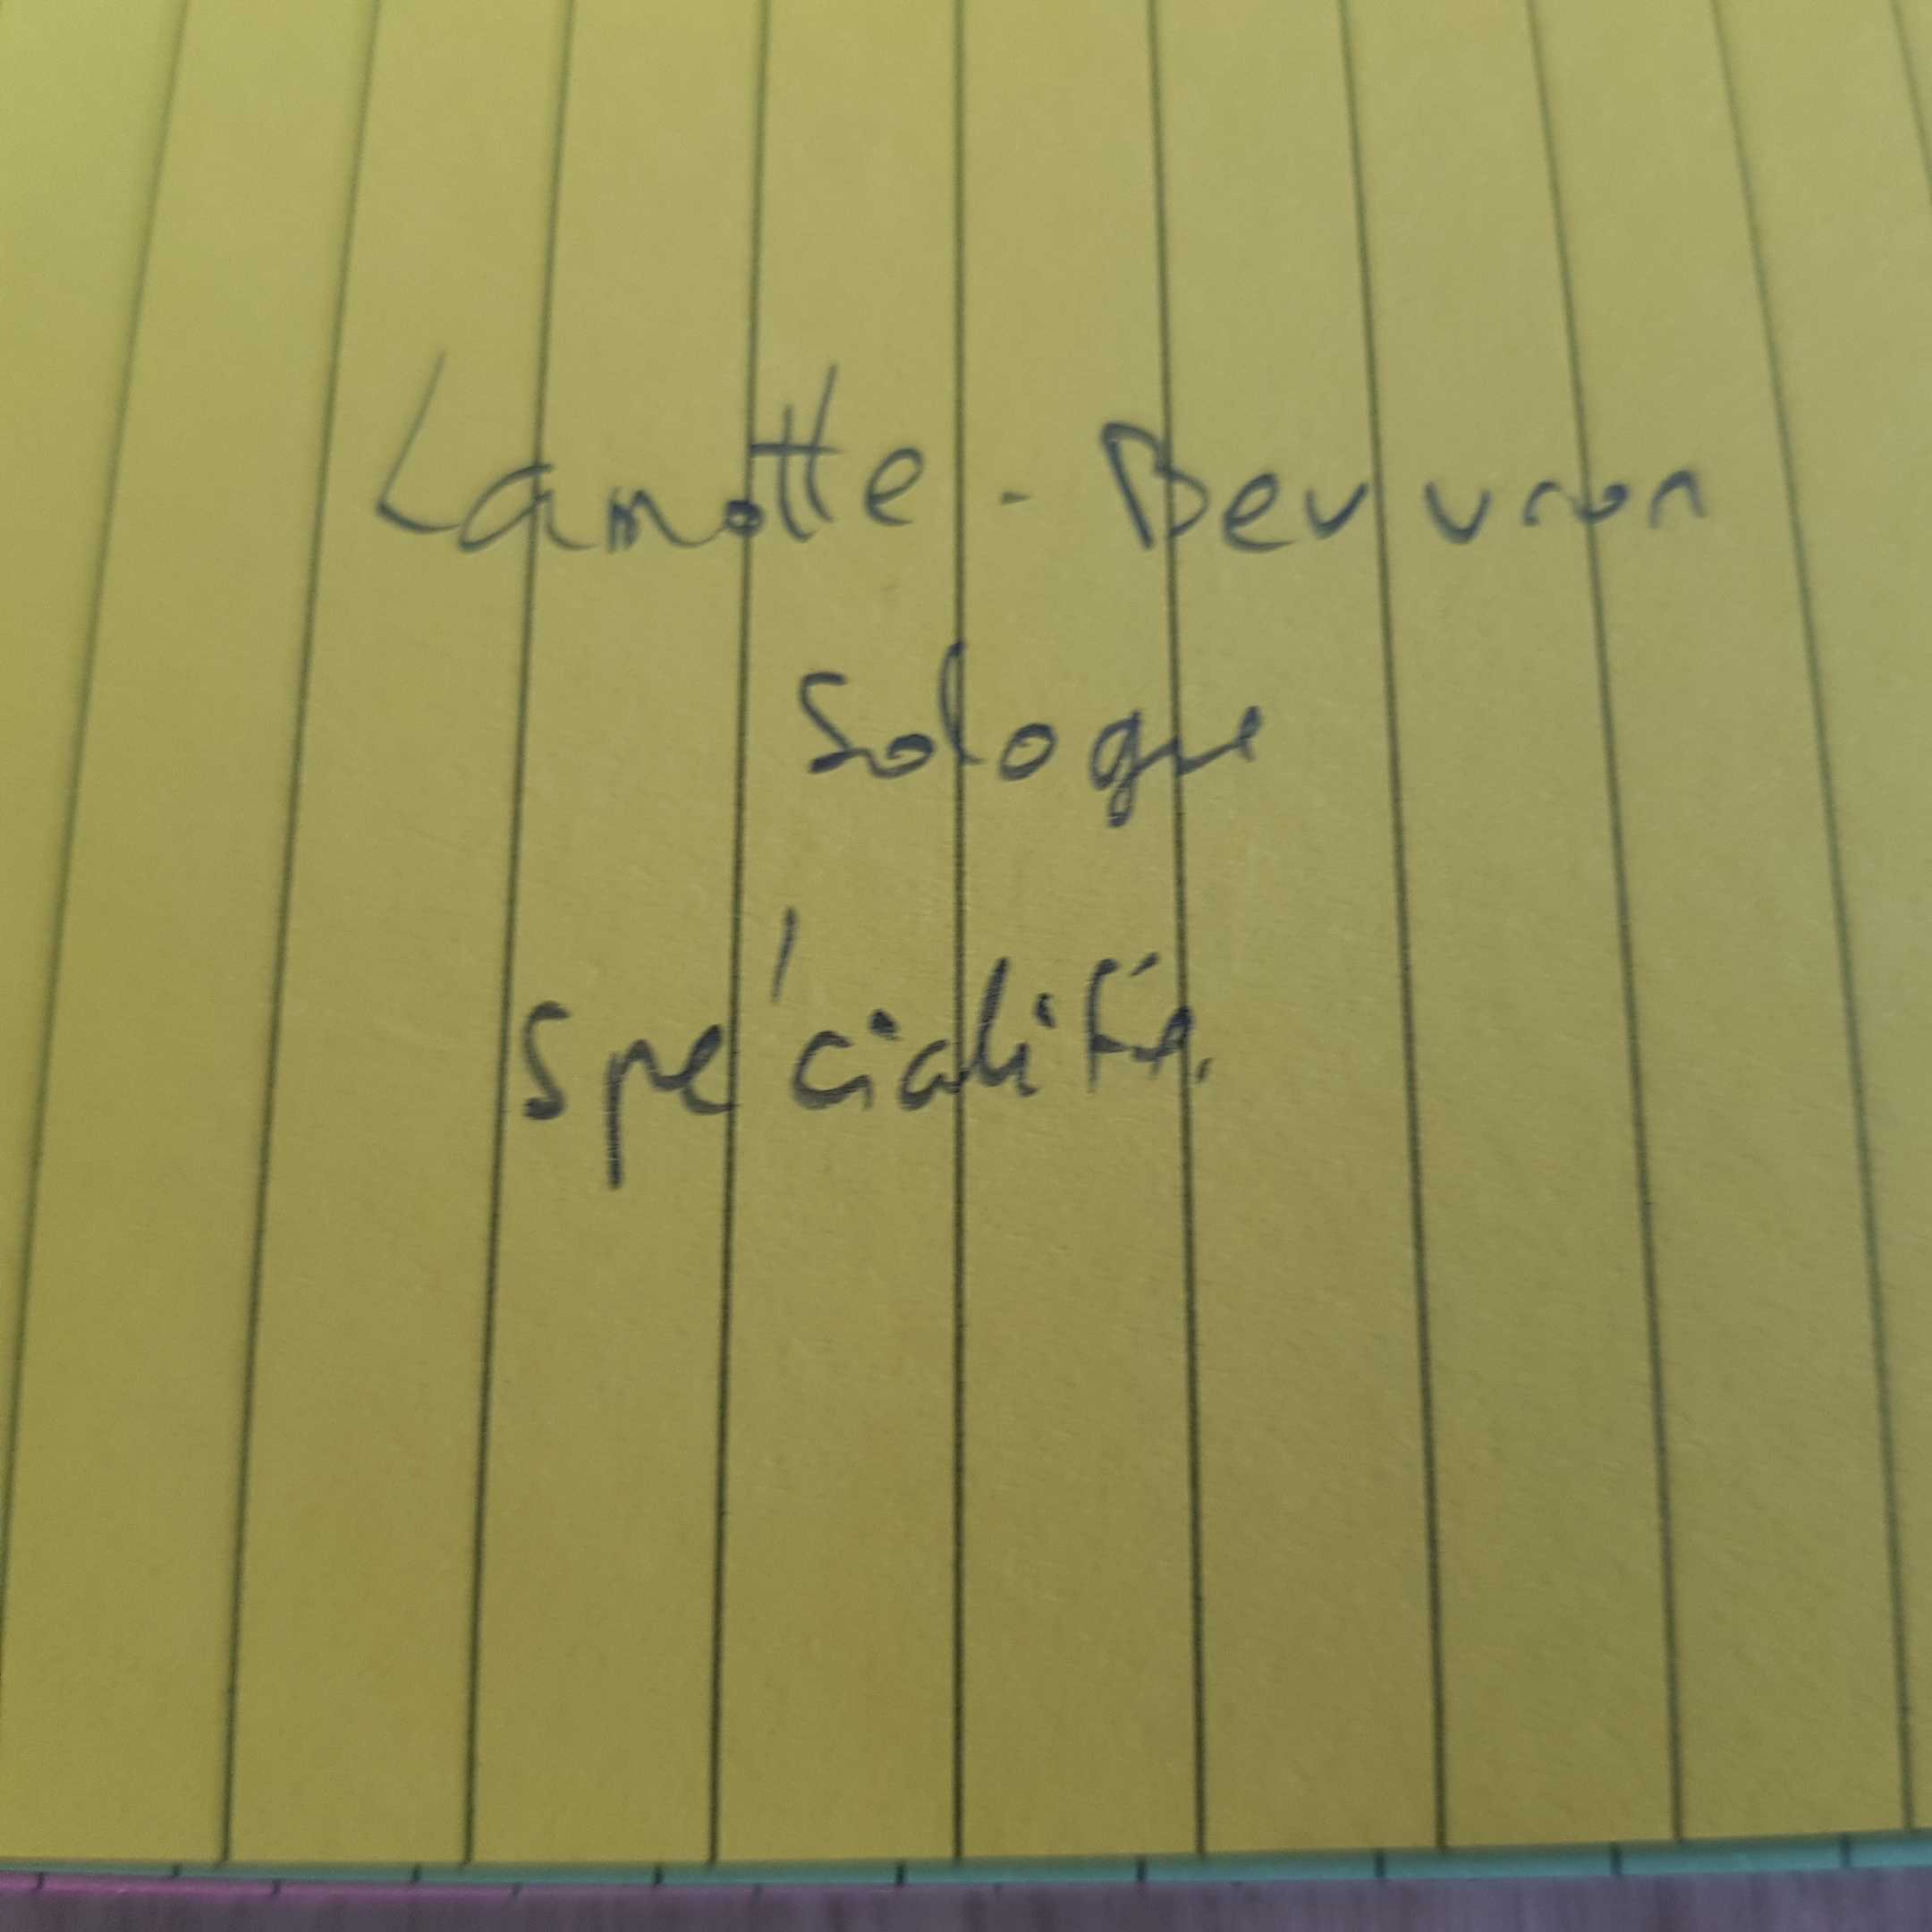 Lamotte - Beuvron
Sologne
Spécialité.